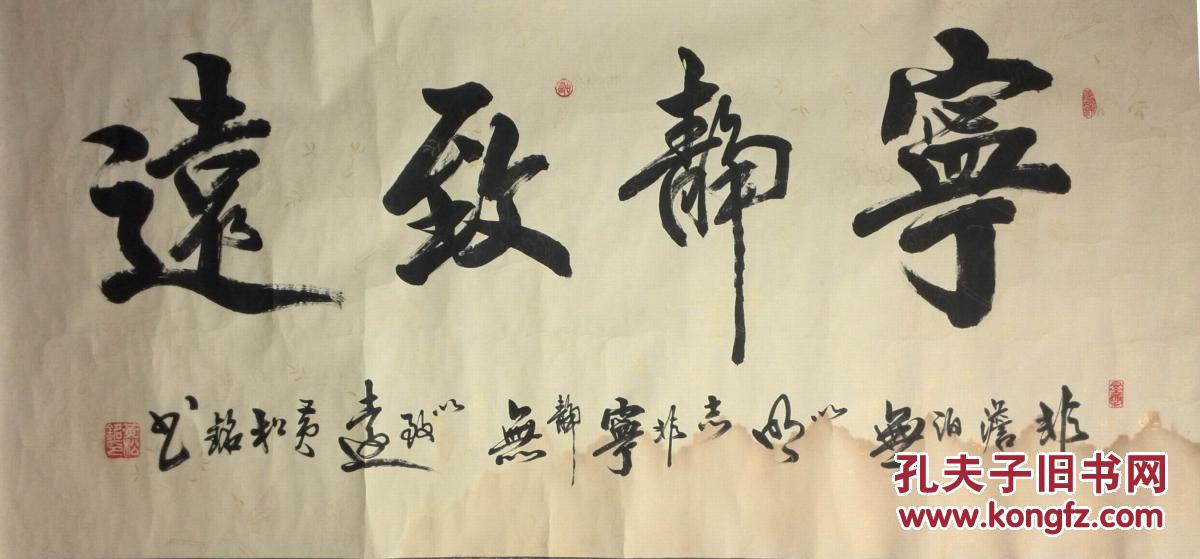 寧靜致遠
非澹泊無以明志非寧靜無以致遠黄松銘书
孔夫子旧书网
www.kongfz.com